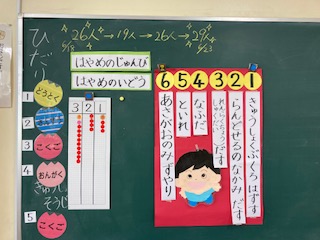 ひだり
26人→19人→26人→29人
6/8
6/23
はやめのじゅんび
はやめのいどう
1
どうとく
2
3
こくご
4
おんがく
そうじ
5
こくご
3 2 1
6 5 4 3 2 1
きゅうしょくぶくろはずす
らんどせるのなかみだす
なふだ
といれ
あさがおのみずやり